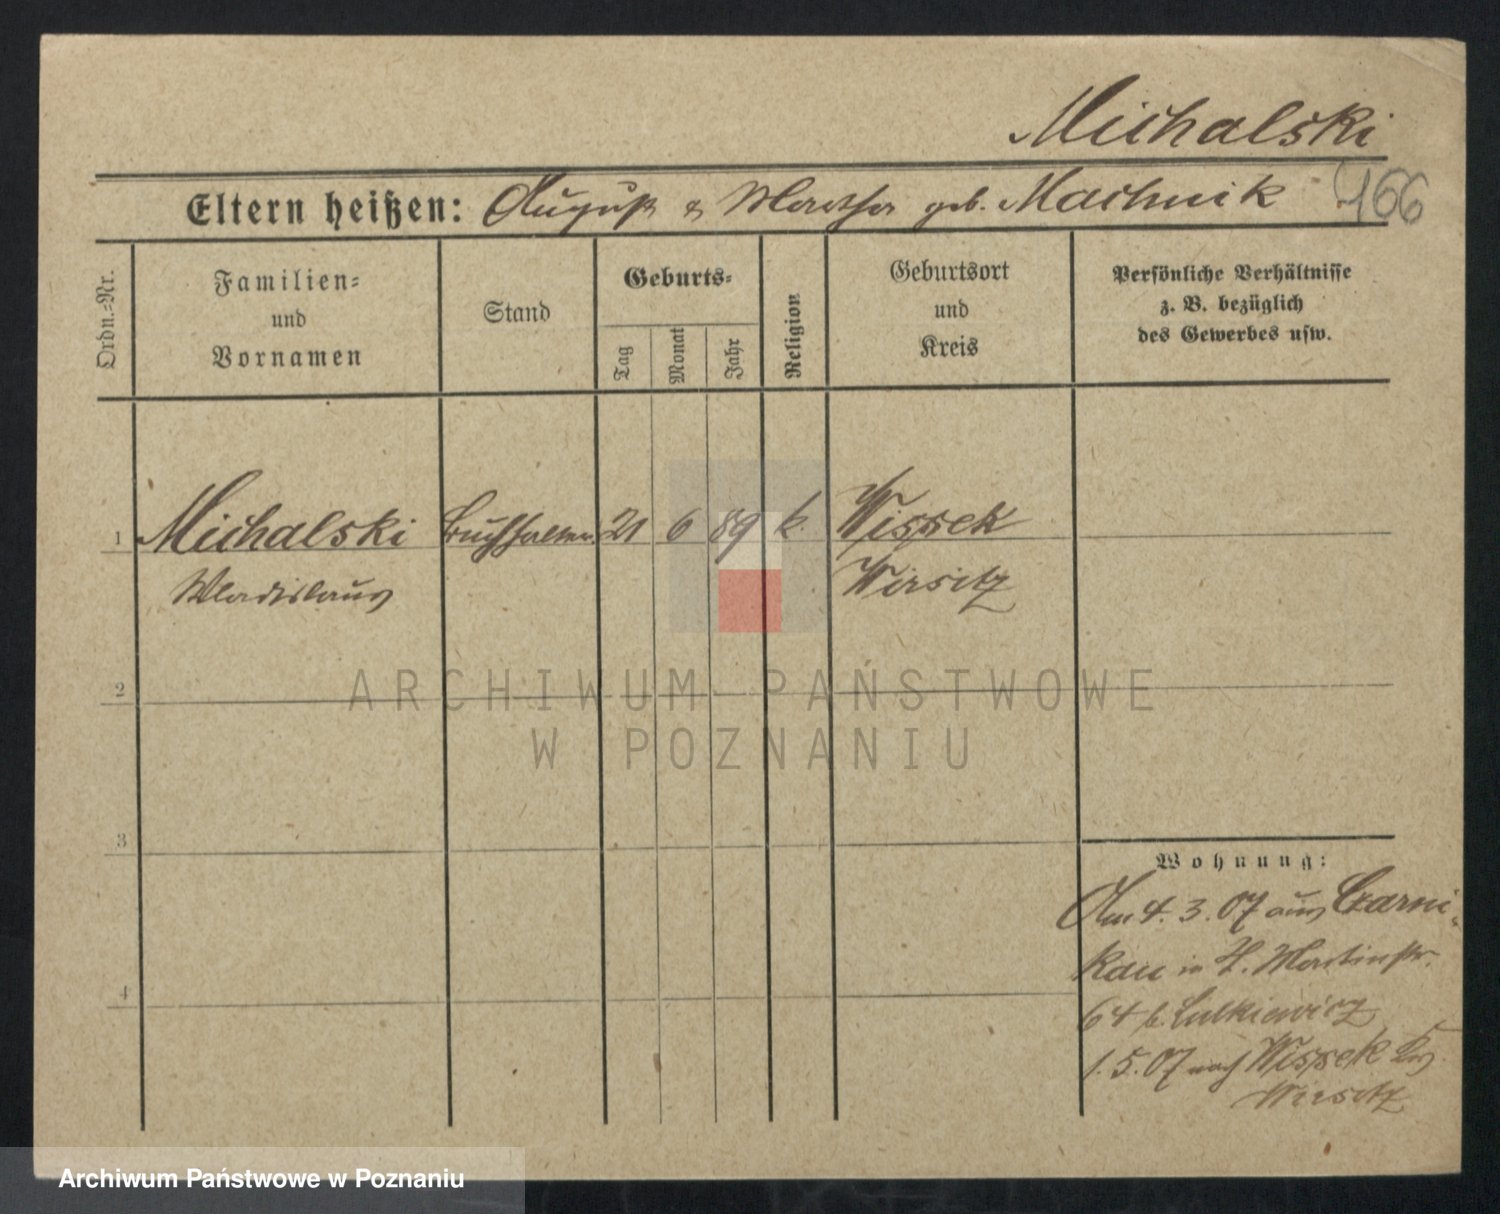 Michalski
Eltern heißen: August & Martha geb. Machnik
466
Ordn.=Nr.
Familien=
und
Vornamen
Stand
Geburts=
Tag
Monat
Jahr
Religion
Geburtsort
und
Kreis
Persönliche Verhältnisse
z. B. bezüglich
des Gewerbes usw.
1 Michalski Buchhalter 21 6 89 k. Wissek
Wladislaus Wirsitz
2
3
4
Wohnung:
Am 4. 3. 07 aus Czarni-
kau in St. Martinstr.
64 b. Lutkiewicz
1. 5. 07 nach Wissek Krs.
Wirsitz
ARCHIWUM PAŃSTWOWE
W POZNANIU
Archiwum Państwowe w Poznaniu